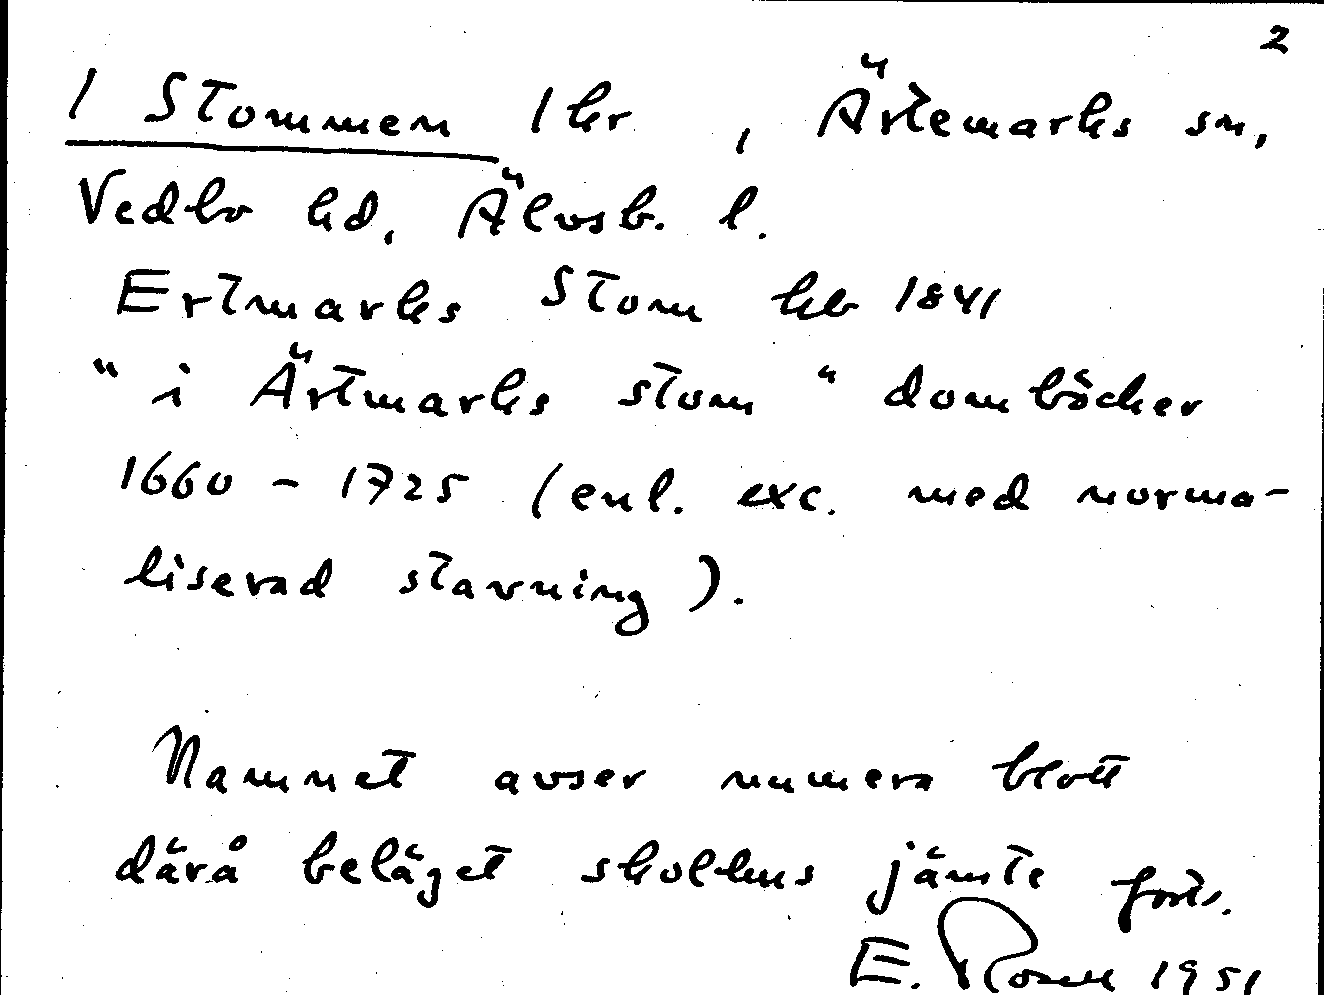 2
1 Stommen 1 kr , Ärtemarks sn,
Vedbo hd, Älvsb. l.
Ertmarks Stom kb 1841
"i Ärtmarks stom" domböcker
1660 - 1725 (enl. exc. med norma-
liserad stavning).
Namnet avser numera blott
därå beläget skolhus jämte forts.
E. Rosell 1951